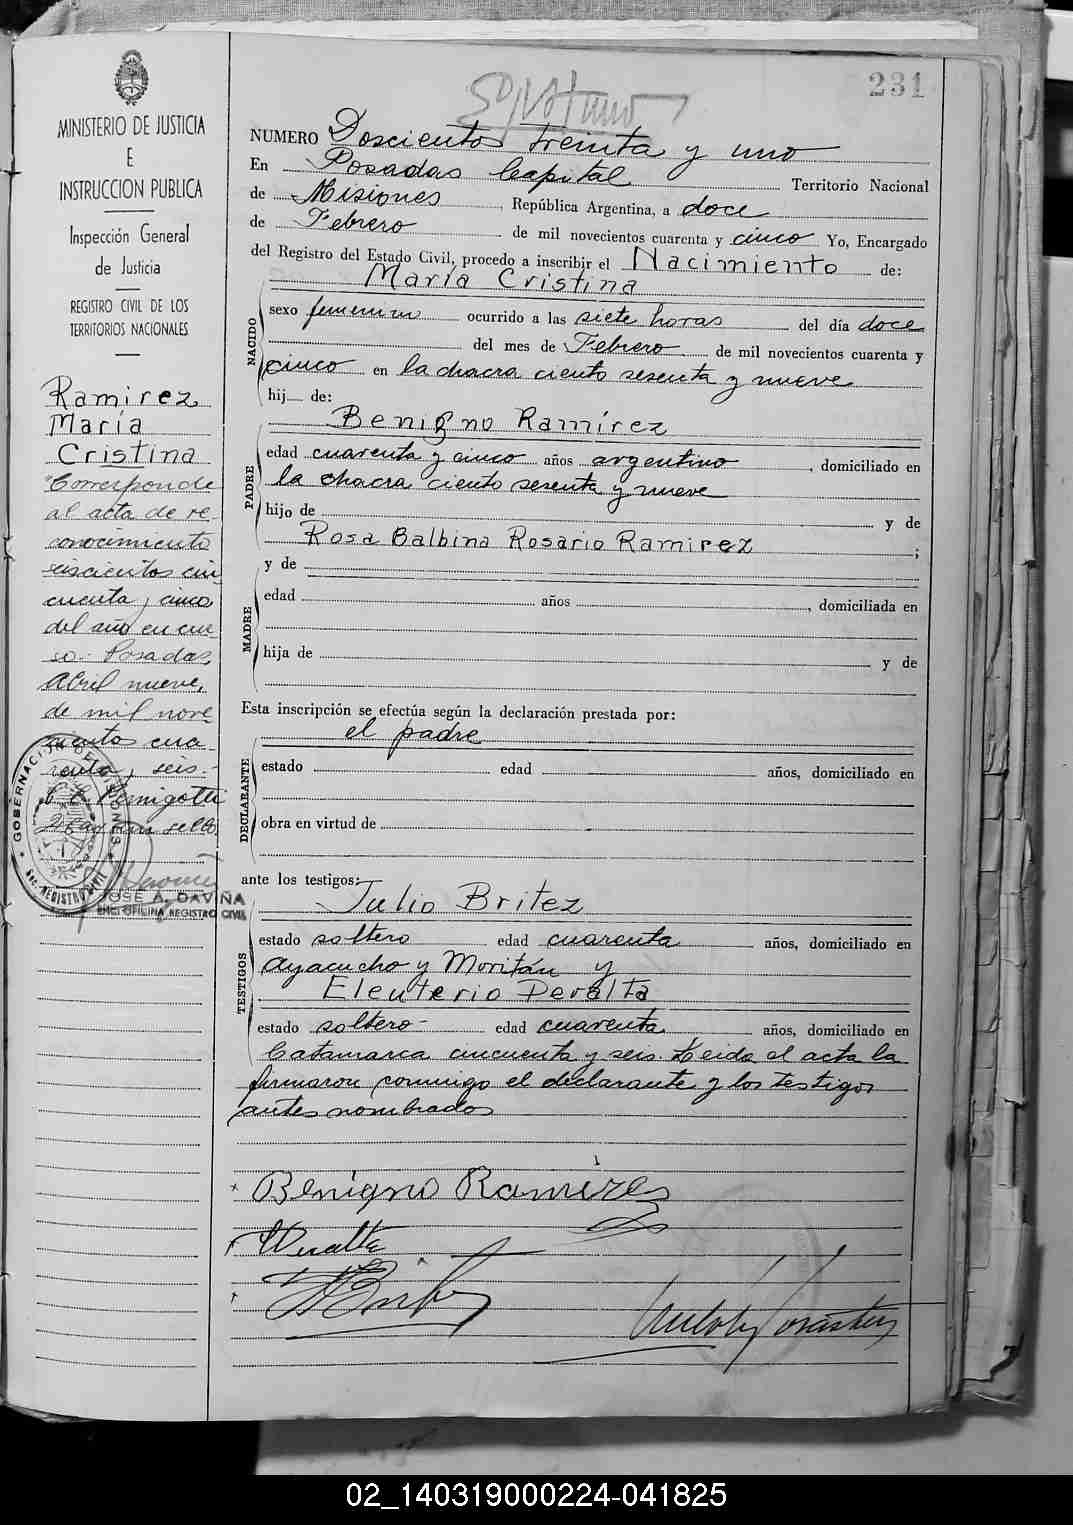 231
MINISTERIO DE JUSTICIA
E
INSTRUCCION PUBLICA
Inspección General
de Justicia
REGISTRO CIVIL DE LOS
TERRITORIOS NACIONALES
Ramirez
María
Cristina
"Corresponde
al acta de re
conocimiento
seiscientos cin
cuenta y cinco
del año en cur
so.- Posadas,
Abril nueve,
de mil nove
cientos cua-
renta y seis.-
Hay un sello.
GOBERNACION DE MISIONES
REGISTRO CIVIL
JOSE A. DAVIÑA
ENC. OFICINA REGISTRO CIVIL
NUMERO Doscientos treinta y uno
En Posadas Capital Territorio Nacional
de Misiones, República Argentina, a doce
de Febrero de mil novecientos cuarenta y cinco Yo, Encargado
del Registro del Estado Civil, procedo a inscribir el Nacimiento de:
María Cristina
NACIDO
sexo femenino ocurrido a las siete horas del día doce
del mes de Febrero de mil novecientos cuarenta y
cinco en la chacra ciento sesenta y nueve
hij de:
Benigno Ramírez
PADRE
edad cuarenta y cinco años argentino, domiciliado en
la chacra ciento sesenta y nueve
hijo de y de
Rosa Balbina Rosario Ramirez ;
y de
MADRE
edad años , domiciliada en
hija de y de
Esta inscripción se efectúa según la declaración prestada por:
el padre
DECLARANTE
estado edad años, domiciliado en
obra en virtud de
ante los testigos:
Julio Britez
TESTIGOS
estado soltero edad cuarenta años, domiciliado en
Ayacucho y Moritán y
Eleuterio Peralta
estado soltero- edad cuarenta años, domiciliado en
Catamarca cincuenta y seis. Leida el acta la
firmaron conmigo el declarante y los testigos
antes nombrados
Benigno Ramirez
02_140319000224-041825